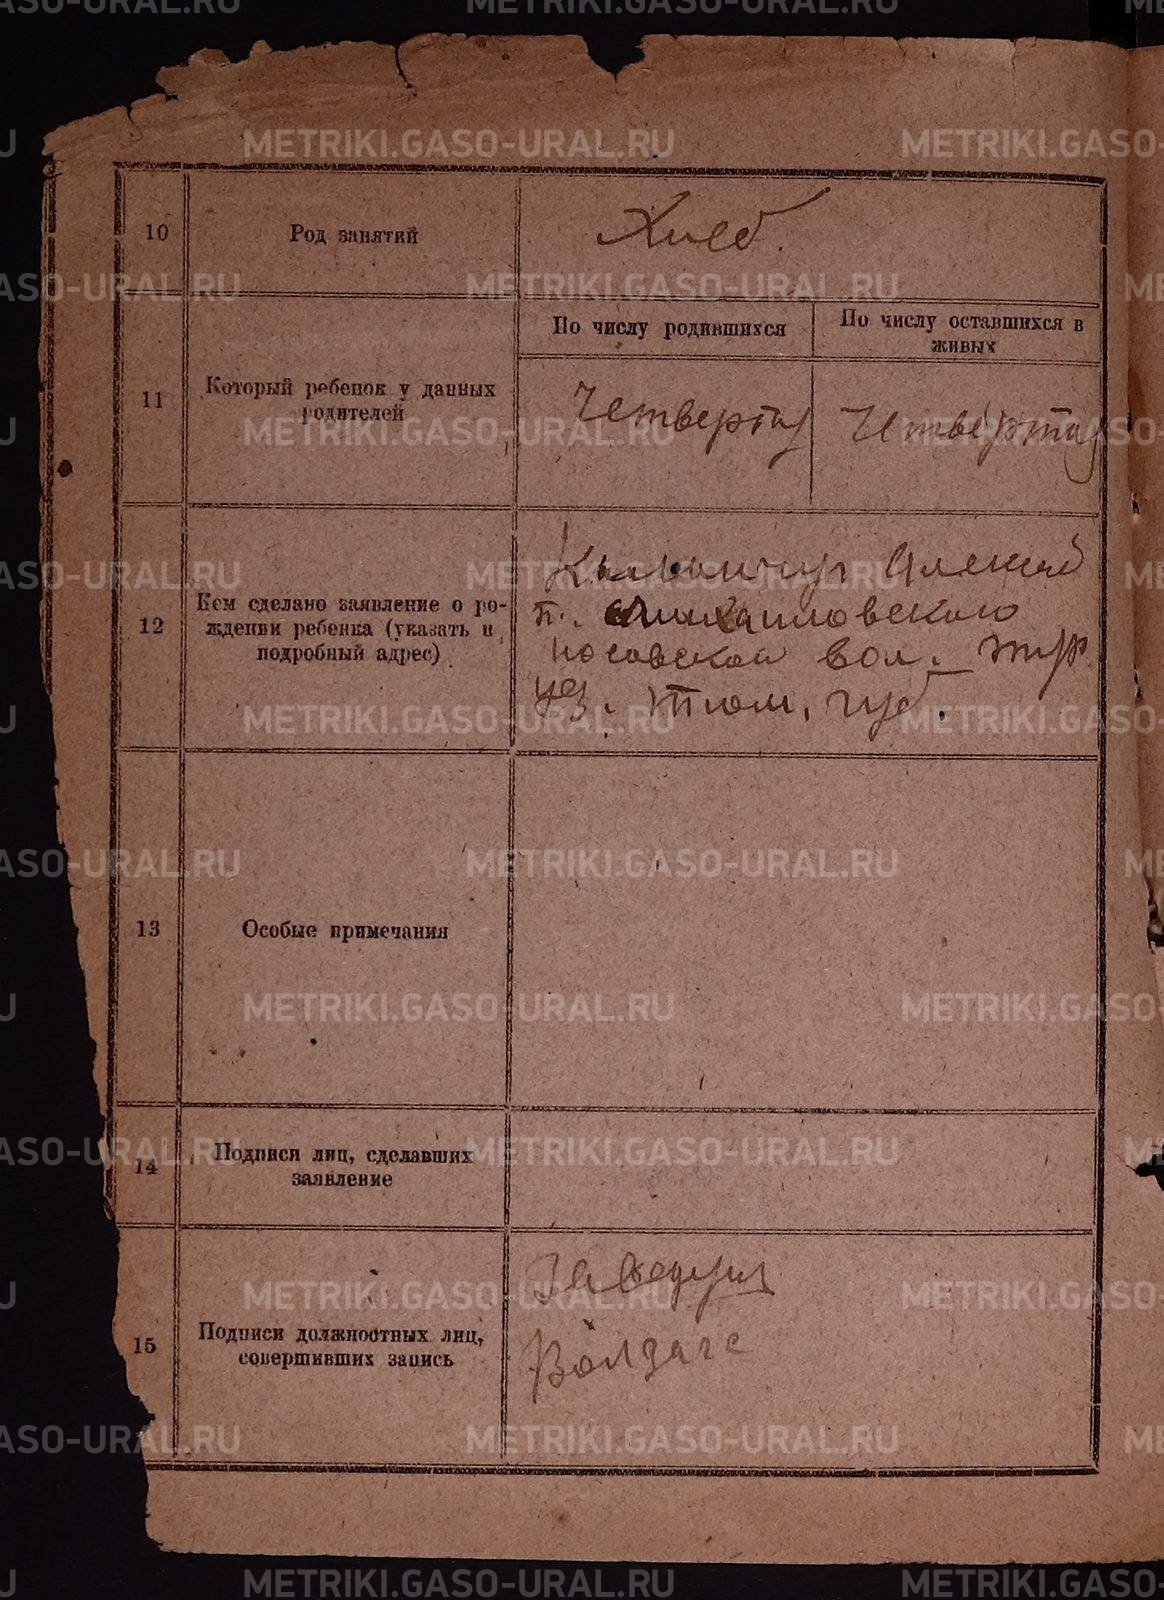 METRIKI.GASO-URAL.RU
10
Род занятий
Хлеб.
11
Который ребенок у данных
родителей
По числу родившихся
По числу оставшихся в
живых
Четвертый
Четвертый
12
Кем сделано заявление о ро-
ждении ребенка (указать и
подробный адрес)
Алексей
п. Михайловского
вол.
уез. Тюм. губ.
13
Особые примечания
14
Подписи лиц, сделавших
заявление
15
Подписи должностных лиц,
совершивших запись
Заведующ
Волзагс